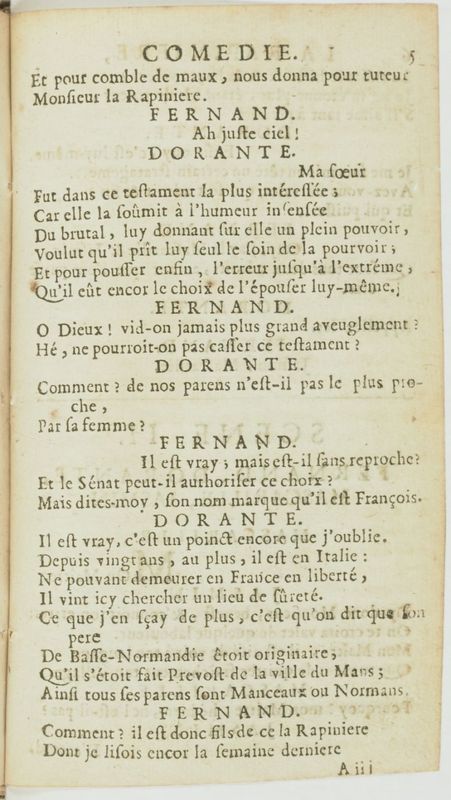 COMEDIE. 5
Et pour comble de maux, nous donna pour tuteur
Monſieur la Rapiniere.
FERNAND.
Ah juſte ciel !
DORANTE.
Ma ſœur
Fut dans ce teſtament la plus intéreſſée ;
Car elle la ſoûmit à l'humeur inſenſée
Du brutal, luy donnant ſur elle un plein pouvoir,
Voulut qu'il prît luy ſeul le ſoin de la pourvoir ;
Et pour pouſſer enfin, l'erreur juſqu'à l'extréme,
Qu'il eût encor le choix de l'épouſer luy-même.
FERNAND.
O Dieux ! vid-on jamais plus grand aveuglement ?
Hé, ne pourroit-on pas caſſer ce teſtament ?
DORANTE.
Comment ? de nos parens n'eſt-il pas le plus pro-
che,
Par ſa femme ?
FERNAND.
Il eſt vray ; mais eſt-il ſans reproche ?
Et le Sénat peut-il authoriſer ce choix ?
Mais dites-moy, ſon nom marque qu'il eſt François.
DORANTE.
Il eſt vray, c'eſt un poinct encore que j'oublie.
Depuis vingt ans, au plus, il eſt en Italie :
Ne pouvant demeurer en France en liberté,
Il vint icy chercher un lieu de ſûreté.
Ce que j'en ſçay de plus, c'eſt qu'on dit que ſon
pere
De Baſſe-Normandie êtoit originaire,
Qu'il s'étoit fait Prevoſt de la ville du Mans ;
Ainſi tous ſes parens ſont Manceaux ou Normans.
FERNAND.
Comment ? il eſt donc fils de ce la Rapiniere
Dont je liſois encor la ſemaine derniere
A iii